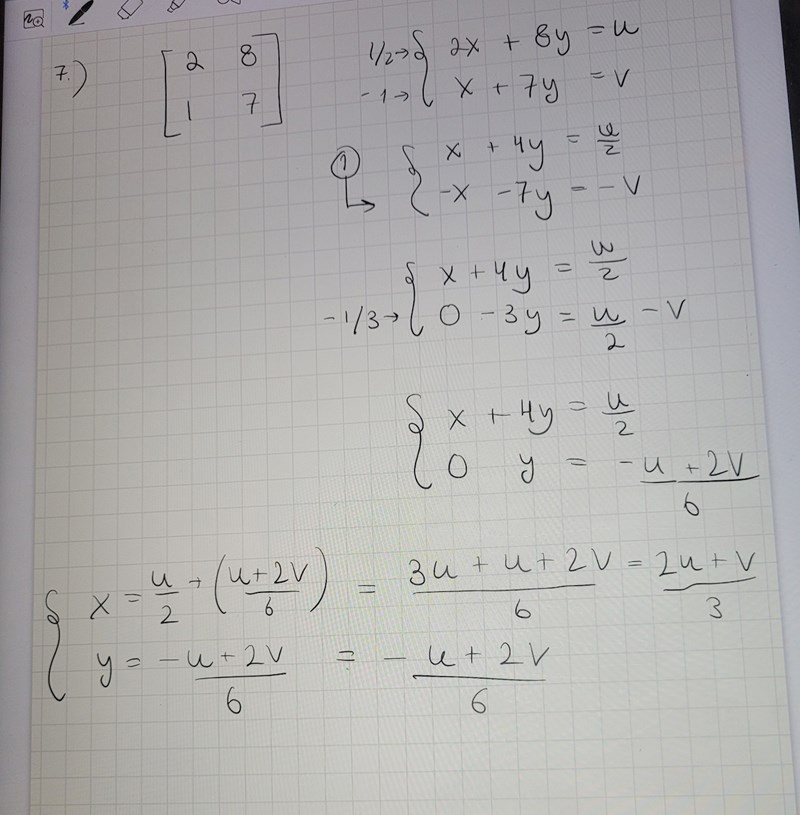 7.) [2 8
1 7]
1/2→ { 2x + 8y = u
-1→ { x + 7y = v
① ↳ { x + 4y = u/2
-x - 7y = -v
{ x + 4y = u/2
-1/3→ { 0 - 3y = u/2 - v
{ x + 4y = u/2
0 y = -u + 2v/6
{ x = u/2 + (u+2v/6) = 3u + u + 2v/6 = 2u + v/3
y = -u + 2v/6 = - u + 2v/6